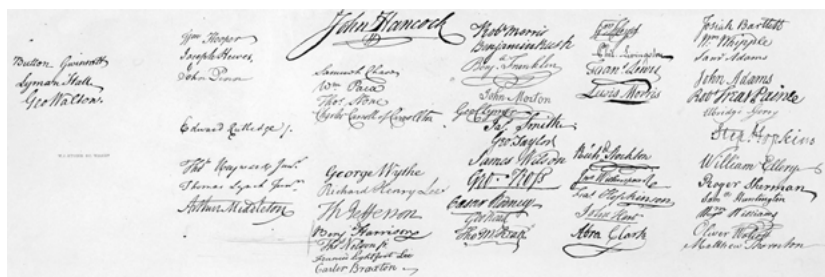 Button Gwinnett
Lyman Hall
Geo Walton.
Wm Hooper
Joseph Hewes,
John Penn
Edward Rutledge /.
Thos Heyward Junr.
Thomas Lynch Junr.
Arthur Middleton
John Hancock
Samuel Chase
Wm Paca
Thos Stone
Charles Carroll of Carrollton
George Wythe
Richard Henry Lee
Th Jefferson
Benj Harrison
Thos Nelson jr.
Francis Lightfoot Lee
Carter Braxton
Robt Morris
Benjamin Rush
Benja Franklin
John Morton
Geo Clymer
Jas Smith
Geo Taylor
James Wilson
Geo. Ross
Caesar Rodney
Geo Read
Tho M:Kean
Wm Floyd
Phil. Livingston
Frans. Lewis
Lewis Morris
Richd Stockton
Jno Witherspoon
Fras Hopkinson
John Hart
Abra Clark
Josiah Bartlett
Wm Whipple
Saml Adams
John Adams
Robt Treat Paine
Elbridge Gerry
Step. Hopkins
William Ellery
Roger Sherman
Saml Huntington
Wm Williams
Oliver Wolcott
Matthew Thornton